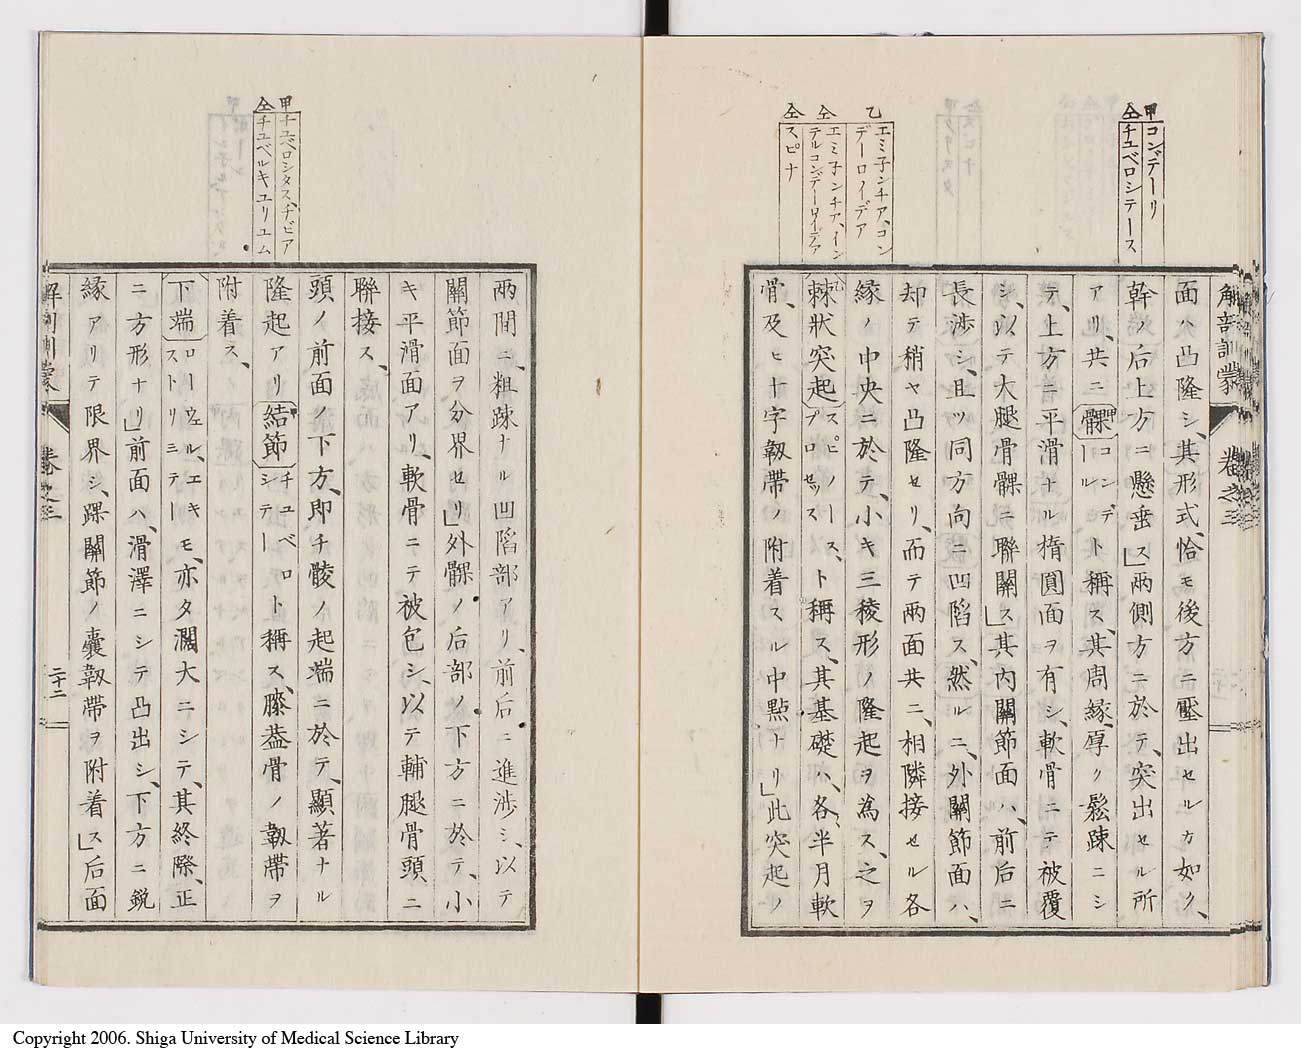 甲 コンデーリ
仝 チユベロシテース
乙 エミ子ンチア、コン
デーロイデア
仝 エミ子ンチア、イン
テルコンデーロイデア
仝 スピナ
解剖訓蒙 卷之三
面ハ凸隆シ、其形式、恰モ後方ニ壓出セルカ如ク、
幹ノ后上方ニ懸垂ス」兩側方ニ於テ、突出セル所
アリ、共ニ髁コンデールト稱ス、其周緣、厚ク鬆疎ニシ
テ、上方ニ平滑ナル橢圓面ヲ有シ、軟骨ニテ被覆
シ、以テ大腿骨髁ニ聯關ス」其內關節面ハ、前后ニ
長渉シ、且ツ同方向ニ凹陷ス、然ルニ、外關節面ハ、
却テ稍ヤ凸隆セリ、而テ兩面共ニ、相隣接セル各
緣ノ中央ニ於テ、小キ三稜形ノ隆起ヲ為ス、之ヲ
棘狀突起スピノース、プロセッスト稱ス、其基礎ハ、各半月軟
骨、及ヒ十字韌帶ノ附着スル中點ナリ」此突起ノ
甲 チユベロシタス、チビア
仝 チユベルキユリユム
兩間ニ、粗疎ナル凹陷部アリ、前后ニ進渉シ、以テ
關節面ヲ分界セリ」外髁ノ后部ノ下方ニ於テ、小
キ平滑面アリ、軟骨ニテ被包シ、以テ輔腿骨頭ニ
聯接ス、
頭ノ前面ノ下方、即チ骸ノ起端ニ於テ、顯著ナル
隆起アリ結節チユベロシテート稱ス、膝葢骨ノ韌帶ヲ
附着ス、
下端ローウエル、エキストリミテーモ、亦タ濶大ニシテ、其終際、正
ニ方形ナリ」前面ハ、滑澤ニシテ凸出シ、下方ニ鋭
緣アリテ限界シ、踝關節ノ囊韌帶ヲ附着ス」后面
解剖訓蒙 卷之三 二十二
Copyright 2006. Shiga University of Medical Science Library